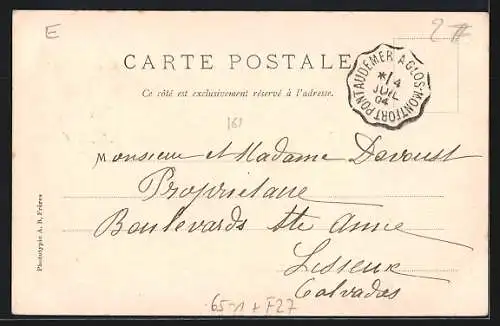 E
2 #
CARTE POSTALE
Ce côté est exclusivement réservé à l'adresse.
PONT AUDEMER A GLOS-MONTFORT
*/4
JUIL
04
161
Monsieur et Madame Davoust
Propriétaire
Boulevards Ste Anne
Lisieux
Calvados
Phototypie A. B. Frères
65-1 + F27